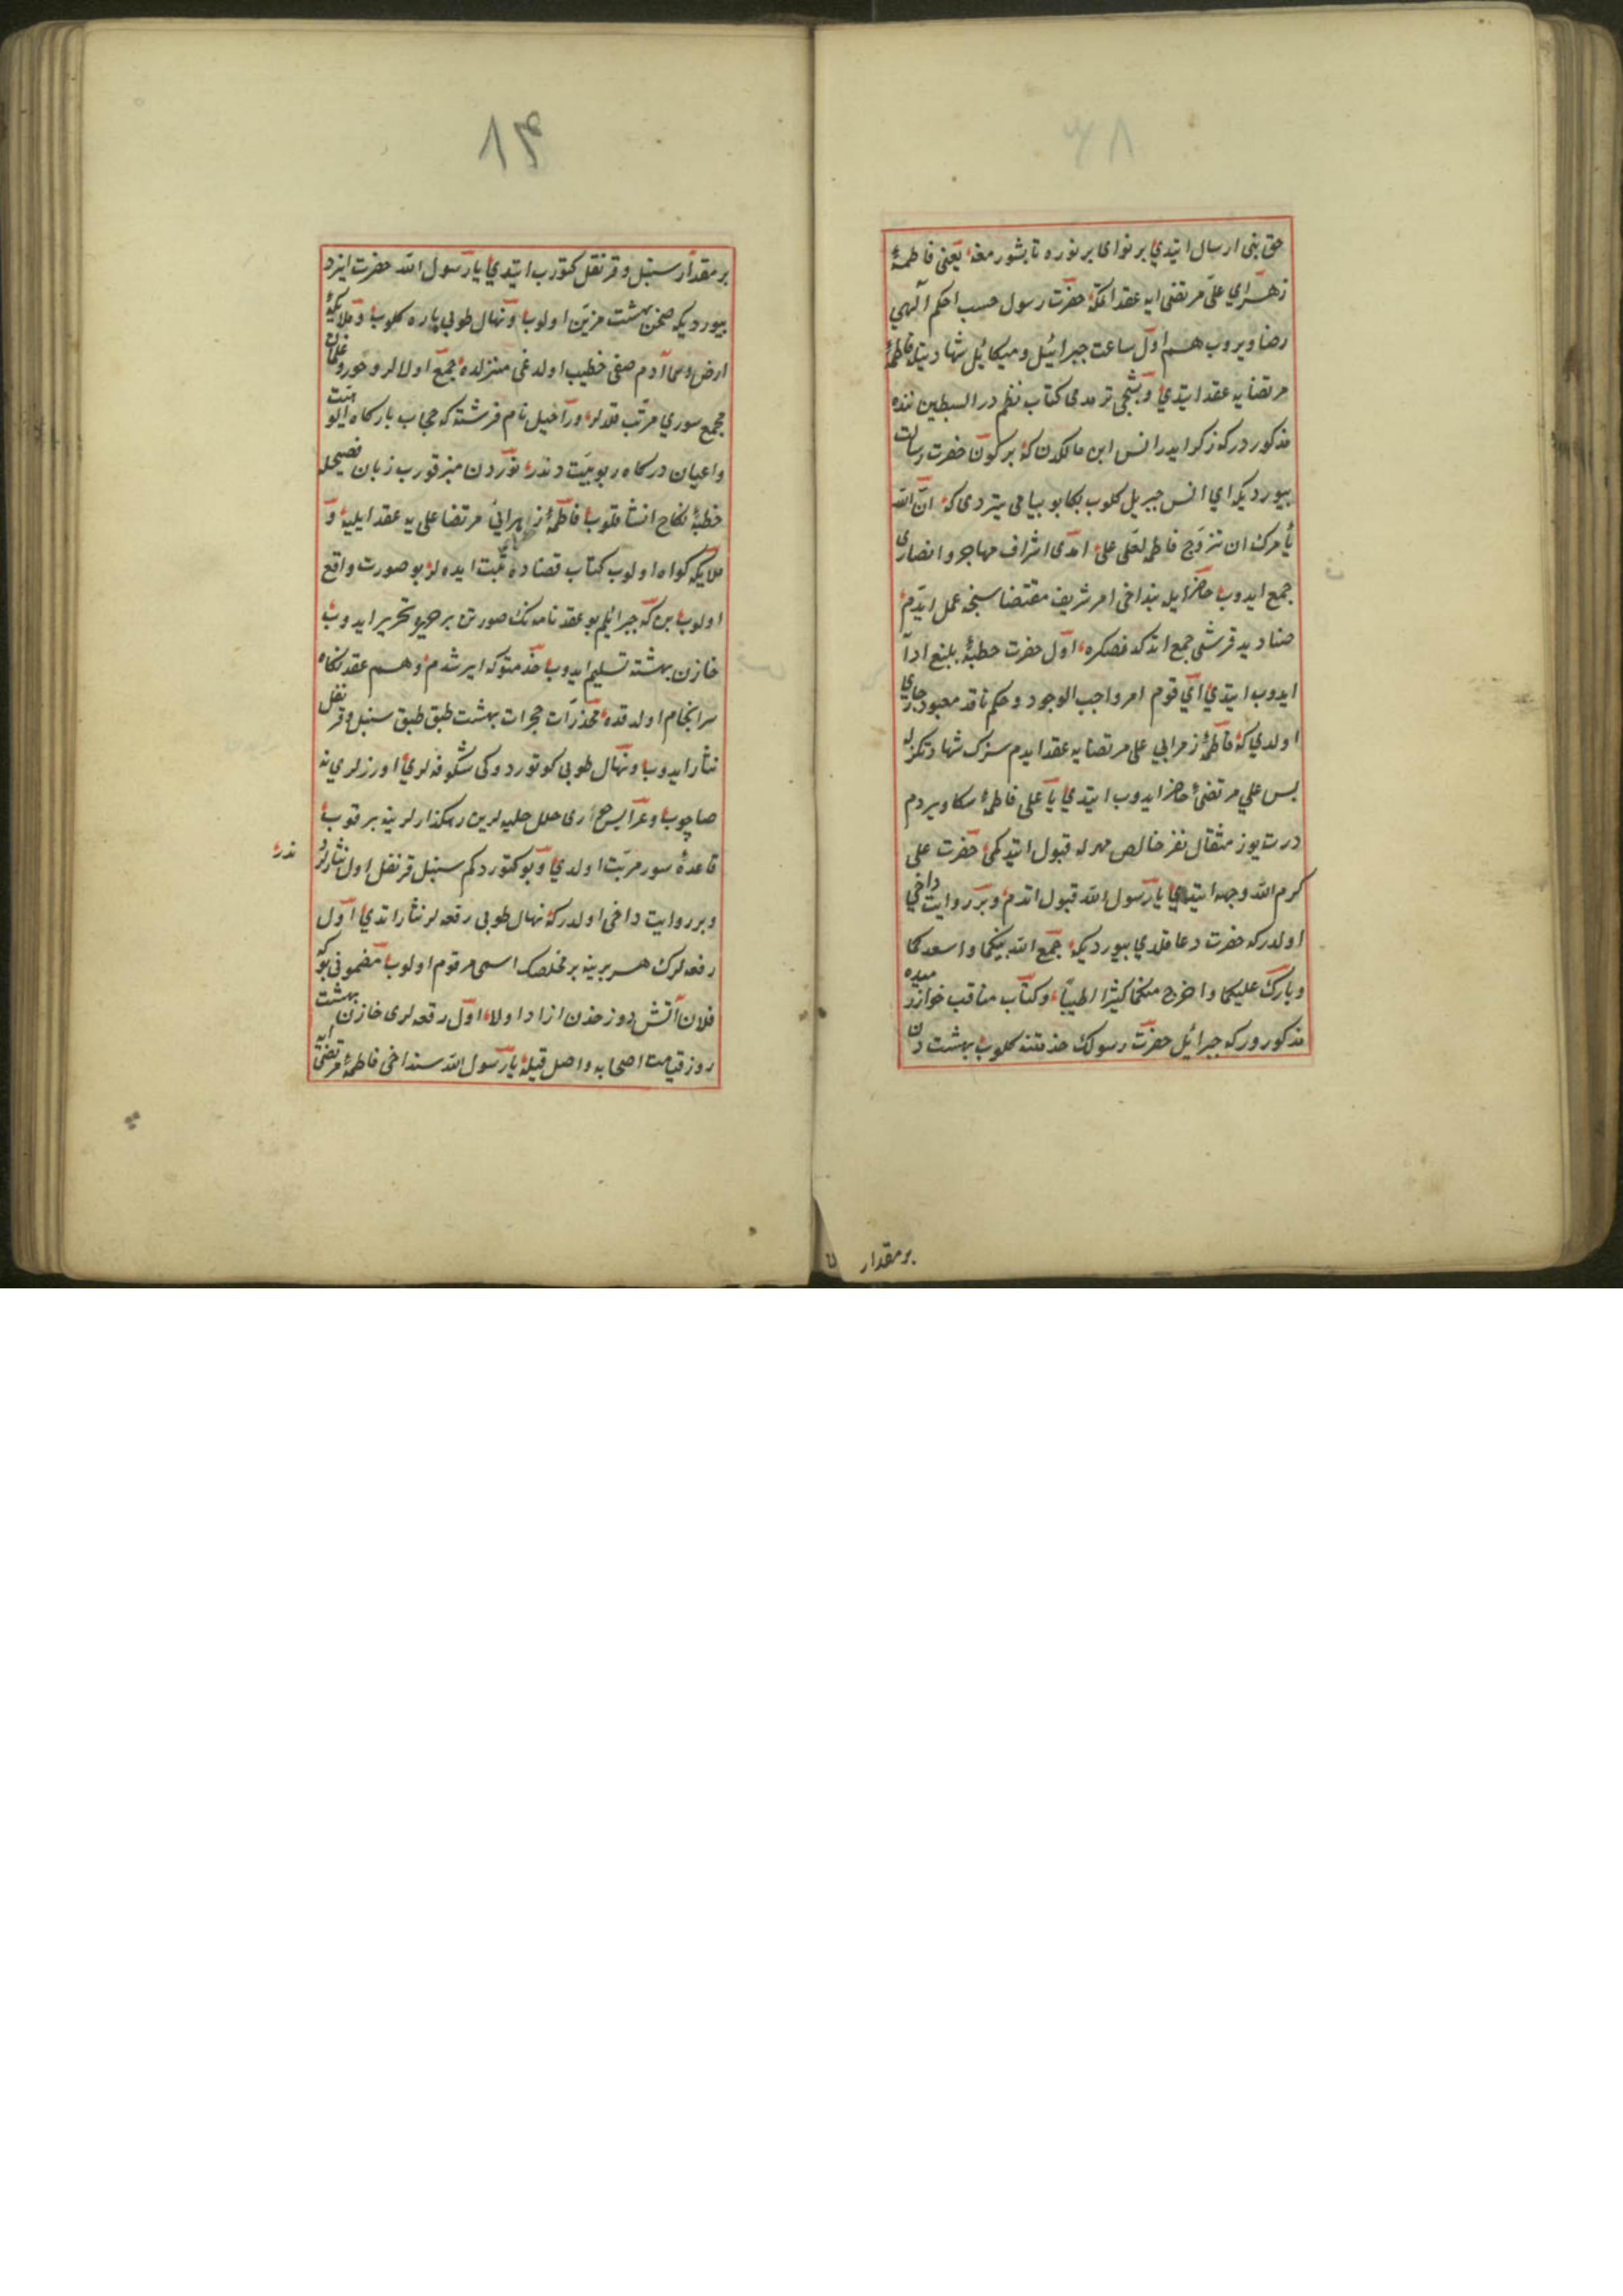 حق بنی ارسال ایتدی بر نوای بر نوره تابشورمغه یعنی فاطمهٔ
زهرایی علی مرتضی ایه عقد اتمکه حضرت رسول حسب احکم آلهی
رضا ویروب هم اول ساعت جبرائیل و میکائیل شهادیتله فاطمهٔ
مرتضایه عقد ایتدی و شیخی ترمدی کتاب نظم در السبطین ننده
مذکوردرکه زکر ایدر انس ابن مالکدن که برکون حضرت رسالت
بیوردیکه ای انس جبریل کلوب بکا بو پیامی یتردی که ان الله
یأمرک ان تزوج فاطمه لعلی علی امدی اشراف مهاجر و انصاری
جمع ایدوب حاضر ایله بنداخی امر شریف مقتضاسنجه عمل ایدم
صنادید قرشی جمع اتدکدنصکره اول حضرت خطبهٔ بلیغ ادا
ایدوب ایتدی ای قوم امر واجب الوجود و حکم ناقد معبود جاری
اولدی که فاطمهٔ زهرایی علی مرتضایه عقد ایدم سزک شهادتکزله
پس علی مرتضیٔ حاضر ایدوب ایتدی یا علی فاطمهٔ سکا ویردم
درت یوز مثقال نقر خالص مهرله قبول ایتدکمی حضرت علی
کرم الله وجهه ایتدی یا رسول الله قبول اتدم و بر روایت داخی
اولدرکه حضرت دعا قلدی بیوردیکه جمع الله بینکما و اسعدکما
و بارک علیکما و اخرج منکما کثیرا لطیباً و کتاب مناقب خوازمیده
مذکوردرکه جبرائیل حضرت رسولک خذمتنه کلوب بهشت دن
بر مقدار
بر مقدار سنبل و قرنقل کتورب ایتدی یا رسول الله حضرت ایزد
بیوردیکه صحن بهشت مزین اولوب و نهال طوبی پاره کلوب و ملایکهٔ
ارض و سما آدم صفی خطیب اولدغی منزلده جمع اولالر و حور و غلمان
مجمع سوری مرتب قلالر و راحیل نام فرشته که حجاب بارکاه الوهیت
و اعیان درکاه ربوبیت دندر نوردن منبر قورب زبان فصیحله
خطبهٔ نکاح انشا قلوب فاطمهٔ زهرایی مرتضا علی یه عقد ایلیه و
ملایکه کواه اولوب کتاب قضاده ثبت ایده لر بو صورت واقع
اولوب بن که جبرائیلم بو عقد نامه نک صورتن بر حریره تحریر ایدوب
خازن بهشته تسلیم ایدوب خذمتوکه ایرشدم و هم عقد نکاه
سرانجام اولدقده مخذرات حجرات بهشت طبق طبق سنبل و قرنفل
نثار ایدوب و نهال طوبی کوتوردوکی شکوفه لری اوزرلرینه
صاچوب و عرایس حوری حلل حلیه لرین رهکذارلرینه برقوب
قاعدهٔ سور مرتب اولدی و بو کتوردکم سنبل قرنفل اول نثارلر
ندر
و بر روایت داخی اولدرکه نهال طوبی رقعه لر نثار اتدی اول
رقعه لرک هر برینه بر مخلصک اسمی مرقوم اولوب مضمونی بو که
فلان آتش دوزخدن ازاد اولا اول رقعه لری خازن بهشت
روز قیامت اصحابه واصل قیله یا رسول الله سنداخی فاطمهٔ مرتضی ایه